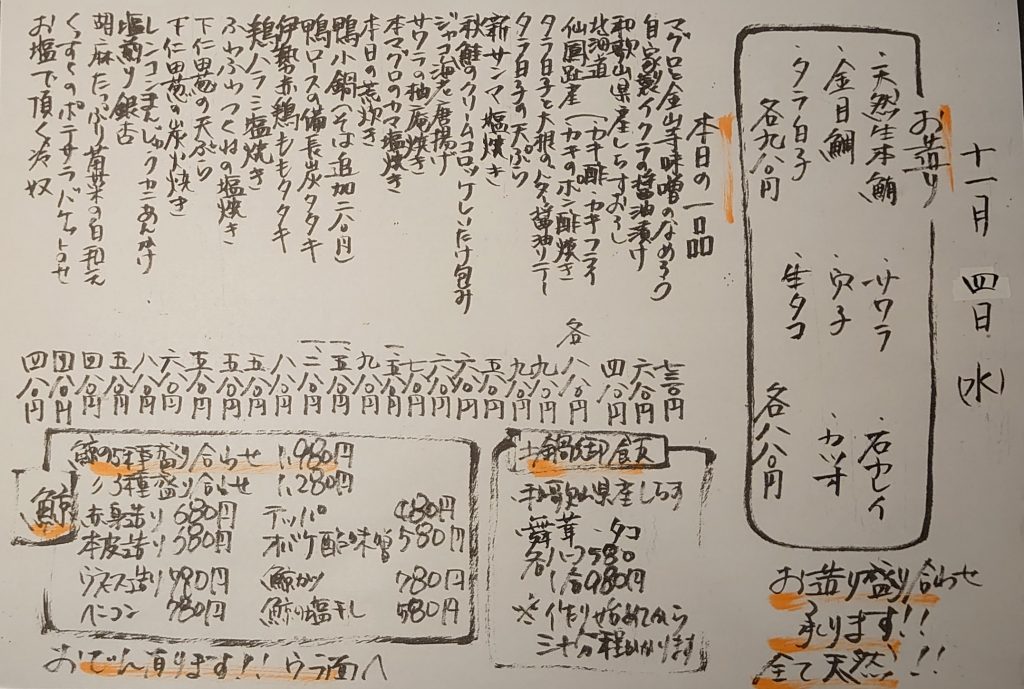 十一月 四日 (水)
お造り
・天然生本鮪 ・サワラ ・石セイ
・金目鯛 ・穴子 ・カツオ
・タラ白子 ・生タコ
各九八〇円 各八八〇円
お造り盛り合わせ
承ります!!
全て天然!!
本日の一品
マグロと金山寺味噌のなめろう 七三〇円
自家製イクラの醤油漬け 六八〇円
和歌山県産しらすおろし 四八〇円
北海道 ・カキ酢 ・カキフライ
仙鳳趾産 (カキのポン酢焼き 各八八〇円
タラ白子と大根のバター醤油ソテー 九八〇円
タラ白子の天ぷら 九八〇円
新サンマ塩焼き 五八〇円
秋鮭のクリームコロッケしいたけ包み 六八〇円
ジャコ海老唐揚げ 六八〇円
サワラの柚庵焼き 七八〇円
本マグロのカマ塩焼き
本日の荒炊き 九八〇円
鴨小鍋(そば追加二八〇円)
鴨ロースの備長炭タタキ
伊勢赤鶏ももタタキ 八八〇円
鶏ハラミ塩焼き 五八〇円
ふわふわつくねの塩焼き 五八〇円
下仁田葱の天ぷら 五八〇円
下仁田葱の炭火焼き 六八〇円
レンコンまんじゅうカニあんかけ 八八〇円
塩煎り銀杏 五八〇円
胡麻たっぷり菊菜の白和え 四八〇円
くんすくのポテサラバケット合せ 四八〇円
お塩で頂く冷奴 四八〇円
土鍋御飯
・和歌山県産しらす
・舞茸 ・タコ
各ハーフ580
1合980円
※作り始めてから
三十分程かかります
鯨
鯨の5種盛り合わせ 1,980円
〃 3種盛り合わせ 1,280円
赤身造り 680円 テッパ 480円
本皮造り 380円 オバケ酢味噌 580円
ウネス造り 780円 鯨カツ 780円
ベーコン 780円 鯨の塩干し 580円
おでん有ります!! ウラ面へ